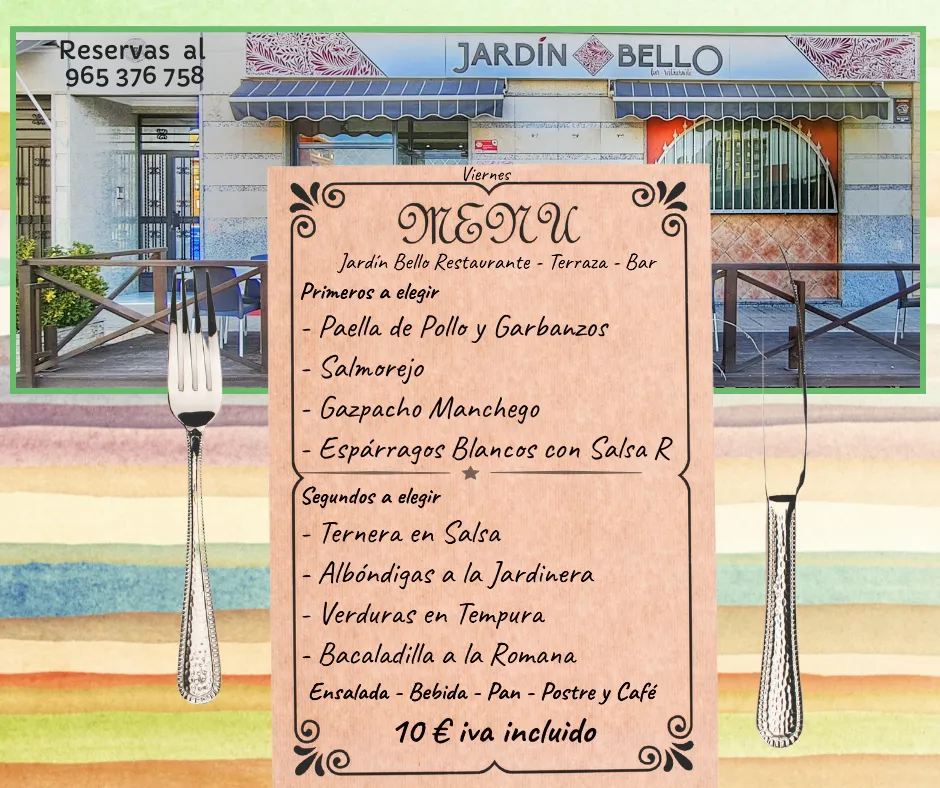 Reservas al
965 376 758
JARDÍN BELLO
bar-restaurante
Viernes
MENU
Jardín Bello Restaurante - Terraza - Bar
Primeros a elegir
- Paella de Pollo y Garbanzos
- Salmorejo
- Gazpacho Manchego
- Espárragos Blancos con Salsa R
Segundos a elegir
- Ternera en Salsa
- Albóndigas a la Jardinera
- Verduras en Tempura
- Bacaladilla a la Romana
Ensalada - Bebida - Pan - Postre y Café
10 € iva incluido